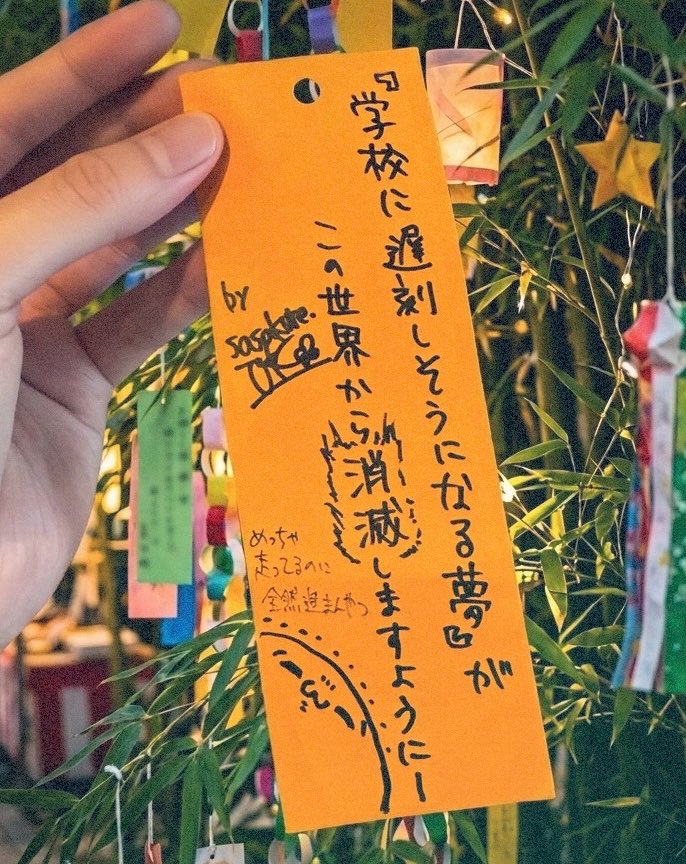 『学校に遅刻しそうになる夢』が
この世界から消滅しますようにー
by
sasakure.UK
めっちゃ
走ってるのに
全然進まんやつ